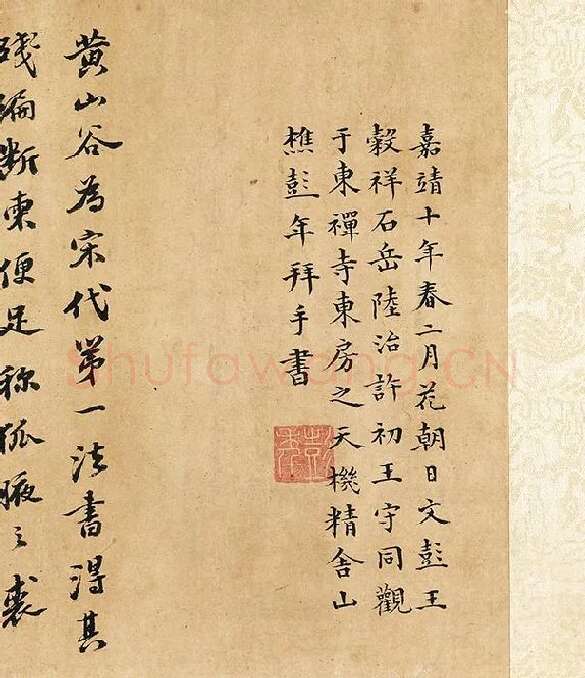 嘉靖十年春二月花朝日文彭王
穀祥石岳陸治許初王守同觀
于東禪寺東房之天機精舍山
樵彭年拜手書
彭年
黄山谷為宋代第一法書得其
殘編断柬便足称狐腋之裘
shufawang.CN